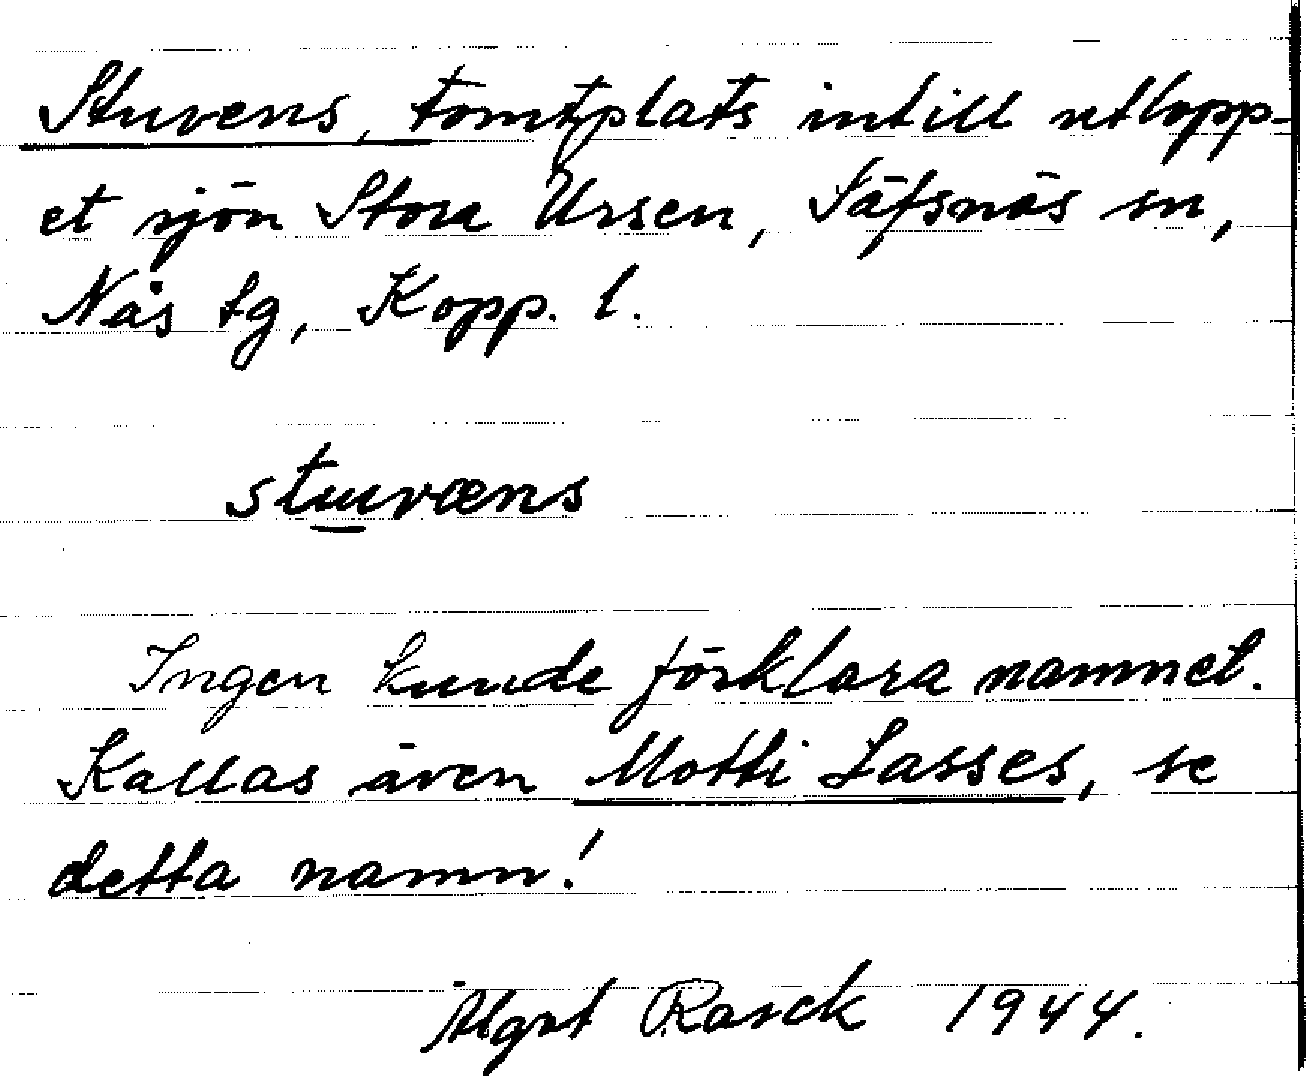 Stuvens, tomtplats intill utlopp-
et sjön Stora Ursen, Säfsnäs sn,
Nås tg, Kopp. l.
stuuvæns
Ingen kunde förklara namnet.
Kallas även Motti Lasses, se
detta namn!
Algot Rasck 1944.